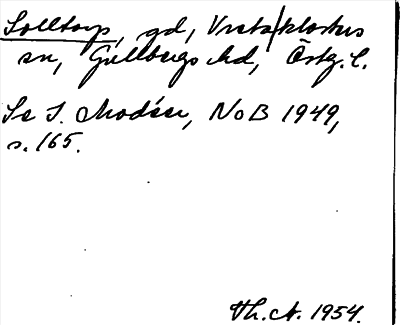 Solltorp, gd, Vreta klosters
sn, Gullbergs hd, Östg. l.
Se I. Modéer, NoB 1949,
s. 165.
Th. A. 1954.